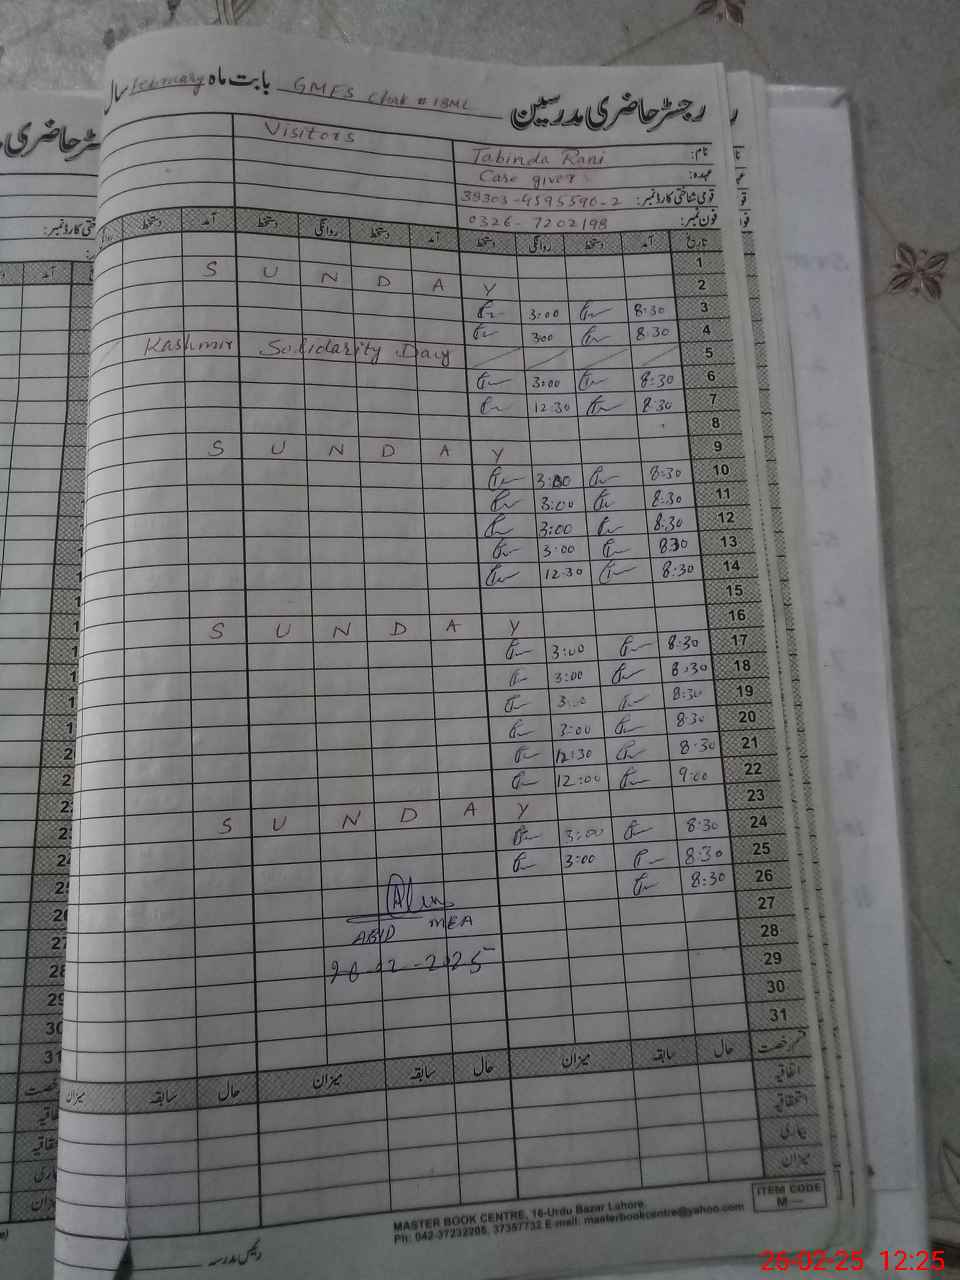 رجسٹر حاضری مدرسین بابت ماہ GMES Chak # 18ML February سال
Visitors
نام: Tabinda Rani
عہدہ: Care giver
قومی شناختی کارڈ نمبر: 38303-4595590-2
فون نمبر: 0326-7202198
تاریخ آمد دستخط روانگی دستخط آمد دستخط روانگی دستخط آمد دستخط
1
2 S U N D A Y
3 8:30 3:00
4 8:30 300
5 Kashmir Solidarity Day
6 8:30 3:00
7 8:30 12:30
8
9 S U N D A Y
10 8:30 3:00
11 8:30 3:00
12 8:30 3:00
13 830 3:00
14 8:30 12:30
15
16 S U N D A Y
17 8:30 3:00
18 8:30 3:00
19 8:30 3:00
20 8:30 3:00
21 8:30 12:30
22 9:00 12:00
23 S U N D A Y
24 8:30 3:00
25 8:30 3:00
26 8:30
27
ABID MEA
28
26-02-2025
29
30
31
قسم رخصت حال سابقہ میزان حال سابقہ میزان حال سابقہ میزان
اتفاقیہ
استحقاقیہ
بیماری
میزان
ITEM CODE
M—
MASTER BOOK CENTRE, 16-Urdu Bazar Lahore.
Ph: 042-37232205, 37357732 E-mail: masterbookcentre@yahoo.com
رئیس مدرسہ
26-02-25 12:25